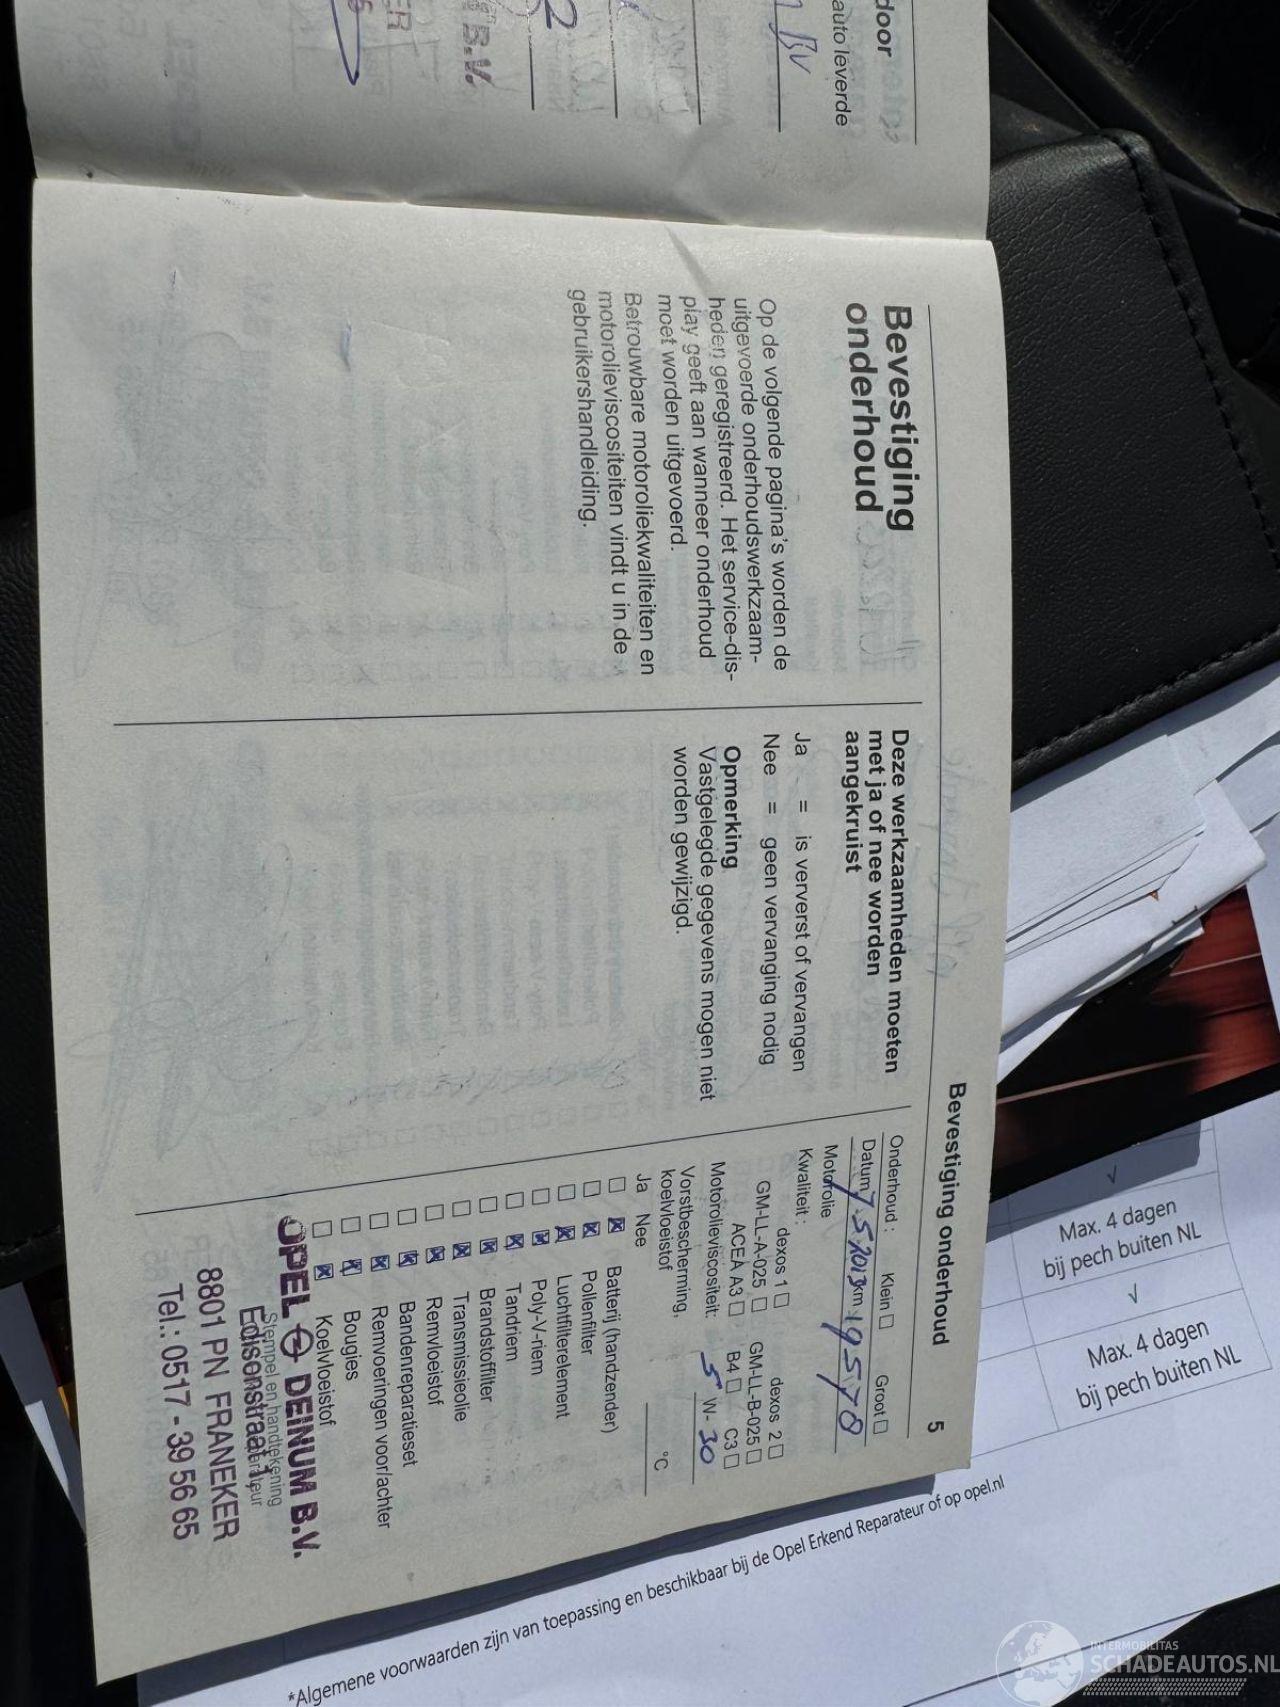 door
auto leverde
BV
B.V.
2
Bevestiging onderhoud
5
Bevestiging
onderhoud
Op de volgende pagina's worden de
uitgevoerde onderhoudswerkzaam-
heden geregistreerd. Het service-dis-
play geeft aan wanneer onderhoud
moet worden uitgevoerd.
Betrouwbare motoroliekwaliteiten en
motorolieviscositeiten vindt u in de
gebruikershandleiding.
Deze werkzaamheden moeten
met ja of nee worden
aangekruist
Ja = is ververst of vervangen
Nee = geen vervanging nodig
Opmerking
Vastgelegde gegevens mogen niet
worden gewijzigd.
Onderhoud : Klein Groot
Datum 7.5.2013 km 19570
Motorolie
Kwaliteit : dexos 1 dexos 2
GM-LL-A-025 GM-LL-B-025
ACEA A3 B4 C3
Motorolieviscositeit: 5 W- 30
Vorstbescherming,
koelvloeistof °C
Ja Nee
Batterij (handzender)
Pollenfilter
Luchtfilterelement
Poly-V-riem
Tandriem
Brandstoffilter
Transmissieolie
Remvloeistof
Bandenreparatieset
Remvoeringen voor/achter
Bougies
Koelvloeistof
OPEL DEINUM B.V.
Stempel en handtekening
Edisonstraat 1
8801 PN FRANEKER
Tel.: 0517 - 39 56 65
Max. 4 dagen
bij pech buiten NL
Max. 4 dagen
bij pech buiten NL
*Algemene voorwaarden zijn van toepassing en beschikbaar bij de Opel Erkend Reparateur of op opel.nl
INTERMOBILITAS
SCHADEAUTOS.NL